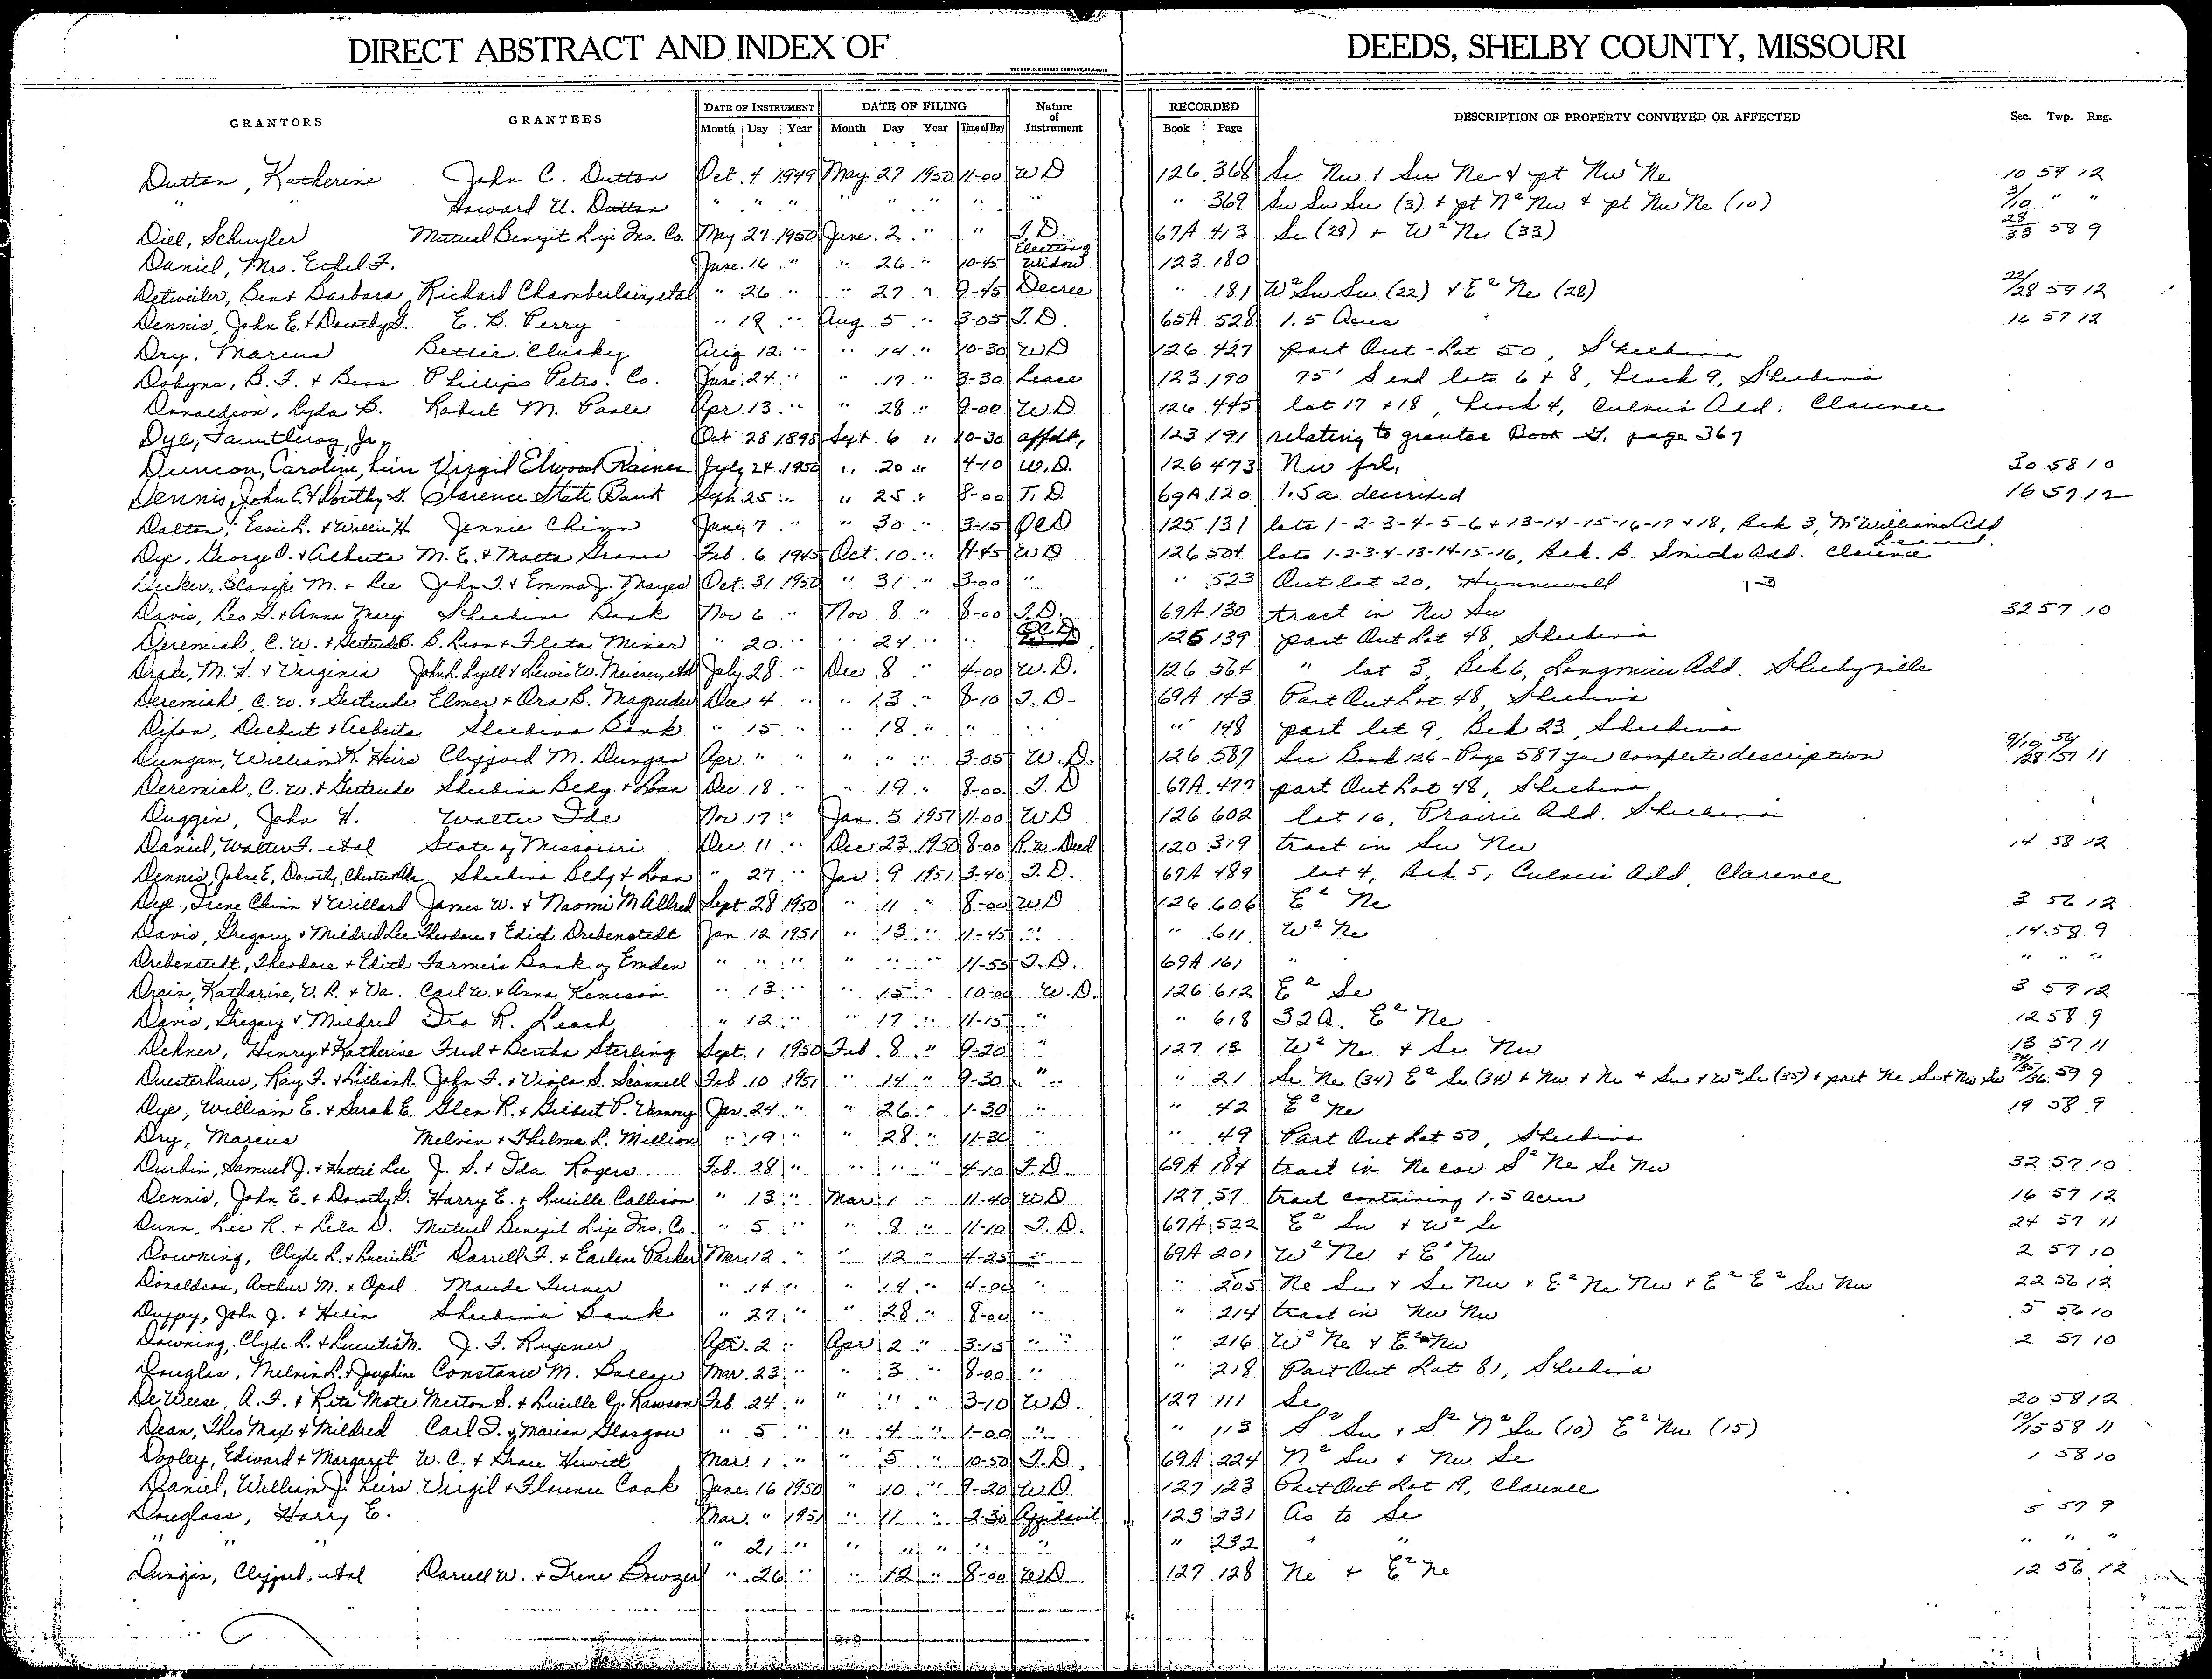 DIRECT ABSTRACT AND INDEX OF DEEDS, SHELBY COUNTY, MISSOURI
THE GEO. D. BARNARD COMPANY, ST. LOUIS
GRANTORS GRANTEES DATE OF INSTRUMENT DATE OF FILING Nature of Instrument RECORDED DESCRIPTION OF PROPERTY CONVEYED OR AFFECTED Sec. Twp. Rng.
Month Day Year Month Day Year Time of Day Book Page
Dutton, Katherine John C. Dutton Oct. 4 1949 May 27 1950 11-00 WD 126 368 Se Nw + Sw Ne + pt Nw Ne 10 59 12
" " Howard U. Dutton " " " " " " " " " 369 Sw Sw Sw (3) + pt N² Nw + pt Nw Ne (10) 3/10 " "
Dill, Schuyler Mutual Benefit Life Ins. Co. May 27 1950 June 2 " " T.D. 67A 413 Se (28) + W² Ne (33) 28/33 58 9
Daniel, Mrs. Ethel F. June 16 " " 26 " 10-45 Election of Widow 123 180
Detweiler, Ben + Barbara Richard Chamberlain, etal " 26 " " 27 " 9-45 Decree " 181 W² Sw Sw (22) + E² Ne (28) 22/28 59 12
Dennis, John E. + Dorothy G. E. B. Perry " 19 " Aug 5 " 3-05 T.D. 65A 528 1.5 Acres 16 57 12
Dry, Marcus Bettie Clusky Aug 12 " " 14 " 10-30 WD 126 427 part Out-Lot 50, Shelbina
Dobyns, B. F. + Bess Phillips Petro. Co. June 24 " " 17 " 3-30 Lease 123 190 75' S end lots 6 + 8, block 9, Shelbina
Donaldson, Lyda B. Robert M. Poole Apr 13 " " 28 " 9-00 WD 126 445 lot 17 + 18, block 4, Culver's Add. Clarence
Dye, Fauntleroy, Jr. Oct 28 1898 Sept 6 " 10-30 affdt, 123 191 relating to grantor Book G. page 367
Duncan, Caroline, heirs Virgil Elwood Raines July 24 1950 " 20 " 4-10 W.D. 126 473 Nw frl, 30 58 10
Dennis, John E + Dorthy G. Clarence State Bank Sept. 25 " " 25 " 8-00 T.D 69A 120 1.5 a described 16 57 12
Dalton, Essie L. + Willie H Jennie Chinn June 7 " " 30 " 3-15 QCD 125 131 lots 1-2-3-4-5-6 + 13-14-15-16-17 + 18, Blk 3, McWilliams Add Leonard.
Dye, George O. + Alberta M. E. + Matta Graves Feb. 6 1945 Oct. 10 " 11-45 WD 126 504 lots 1-2-3-4-13-14-15-16, Blk. B. Smiths Add. Clarence
Decker, Blanche M. + Lee John T. + Emma J. Mayes Oct. 31 1950 " 31 " 3-00 " " 523 Out lot 20, Hunnewell
Davis, Leo G. + Anna Mary Shelbina Bank Nov. 6 " Nov 8 " 8-00 T.D. 69A 130 tract in Nw Sw 32 57 10
Deremiah, C. W. + Gertrude B. B. Leon + Fleta Minor " 20 " " 24 " " QCD 125 139 part Out Lot 48, Shelbina
Drake, M. H. + Virginia John L. Lyell + Lewis W. Meisner, etal July 28 " Dec 8 " 4-00 W.D. 126 564 " lot 3, Blk 6, Longmire Add. Shelbyville
Deremiah, C. W. + Gertrude Elmer + Ora B. Magruder Dec 4 " " 13 " 8-10 T.D- 69A 143 Part Out Lot 48, Shelbina
Delbert + Alberta Shelbina Bank " 15 " " 18 " " " " 148 part lot 9, Blk 23, Shelbina
Dungan, William K. Heirs Clifford M. Dungan Apr. " " " " " 3-05 W.D. 126 587 See Book 126 - Page 587 for complete description 57 11
Deremiah, C. W. + Gertrude Shelbina Bldg. + Loan Dec. 18 " " 19 " 8-00 T.D 67A 477 part Out Lot 48, Shelbina
Duggin, John H. Walter Ide Nov. 17 " Jan. 5 1951 11-00 WD 126 602 lot 16, Prairie Add. Shelbina
Daniel, Walter F. etal State of Missouri Dec 11 " Dec 23 1950 8-00 R.W. Deed 120 319 tract in Sw Nw 14 58 12
Dennis, John E, Dorothy, Chester Shelbina Bldg + Loan " 27 " Jan. 9 1951 3-40 T.D. 67A 489 lot 4, Blk 5, Culvers Add, Clarence
Dye, Irene Chinn + Willard James W. + Naomi M Allred Sept. 28 1950 " 11 " 8-00 WD 126 606 E² Ne 3 56 12
Davis, Gregory + Mildred Lee Theodore + Edith Drebenstedt Jan. 12 1951 " 13 " 11-45 " " 611 W² Ne 14 58 9
Drebenstedt, Theodore + Edith Farmers Bank of Emden " " " " " " 11-55 T.D. 69A 161 " " " "
Drain, Katharine, V. L. + Va. Carl W. + Anna Kenison " 13 " " 15 " 10-00 W.D. 126 612 E² Se 3 59 12
Davis, Gregory + Mildred Ira R. Leach " 12 " " 17 " 11-15 " " 618 32A. E² Ne 12 58 9
Dehner, Henry + Katherine Fred + Bertha Sterling Sept. 1 1950 Feb. 8 " 9-20 " 127 13 W² Ne + Se Nw 13 57 11
Duesterhaus, Ray F. + Lillian A. John F. + Viola S. Scannell Feb. 10 1951 " 14 " 9-30 " " 21 Se Ne (34) E² Se (34) + Nw + Ne + Sw + W² Se (35) + part Ne Sw + Nw Sw 34/35/36 59 9
Dye, William E. + Sarah E. Glen R. + Gilbert P. Vannoy Jan. 24 " " 26 " 1-30 " " 42 E² Ne 19 58 9
Dry, Marcus Melvin + Thelma L. Million " 19 " " 28 " 11-30 " " 49 Part Out Lot 50, Shelbina
Durbin, Samuel J. + Hattie Lee J. S. + Ida Rogers Feb. 28 " " " " 4-10 T.D. 69A 184 tract in Ne cor S² Ne Se Nw 32 57 10
Dennis, John E. + Dorothy G. Harry E. + Lucille Callison " 13 " Mar. 1 " 11-40 WD 127 57 tract containing 1.5 acres 16 57 12
Dunn, Lee R. + Lela D. Mutual Benefit Life Ins. Co. " 5 " " 8 " 11-10 T.D. 67A 522 E² Sw + W² Se 24 57 11
Downing, Clyde L. + Lucretia Darrell F. + Earlene Parker Mar. 12 " " 12 " 4-25 " 69A 201 W² Ne + E² Nw 2 57 10
Donaldson, Arthur M. + Opal Maude Turner " 14 " " 14 " 4-00 " " 205 Ne Sw + Se Nw + E² Ne Nw + E² E² Sw Nw 22 56 12
Duffey, John J. + Helen Shelbina Bank " 27 " " 28 " 8-00 " " 214 tract in Nw Nw 5 56 10
Downing, Clyde L. + Lucretia M. J. F. Rugener Apr. 2 " Apr 2 " 3-15 " " 216 W² Ne + E² Nw 2 57 10
Douglas, Melvin L. + Josephine Constance M. Mar. 23 " " 3 " 8-00 " " 218 Part Out Lot 81, Shelbina
DeWeese, A. F. + Rita Mote Merton S. + Lucille G. Rawson Feb 24 " " " " 3-10 WD. 127 111 Se 20 58 12
Dean, Theo Max + Mildred Carl F. + Marian Glasgow " 5 " " 4 " 1-00 " " 113 S² Sw + S² N² Sw (10) E² Nw (15) 10/15 58 11
Dooley, Edward + Margaret W. C. + Grace Hewitt Mar. 1 " " 5 " 10-50 T.D. 69A 224 N² Sw + Nw Se 1 58 10
Daniel, William J. heirs Virgil + Florence Cook June 16 1950 " 10 " 9-20 WD. 127 123 Part Out Lot 19, Clarence
Douglass, Harry E. Mar. " 1951 " 11 " 2-30 Affidavit 123 231 As to Se 5 57 9
" " " " 21 " " " " " " " 232 " " " " "
Dungan, Clifford, etal Darrell W. + Irene Bowzer " 26 " " 12 " 8-00 WD 127 128 Ne + E² Ne 12 56 12